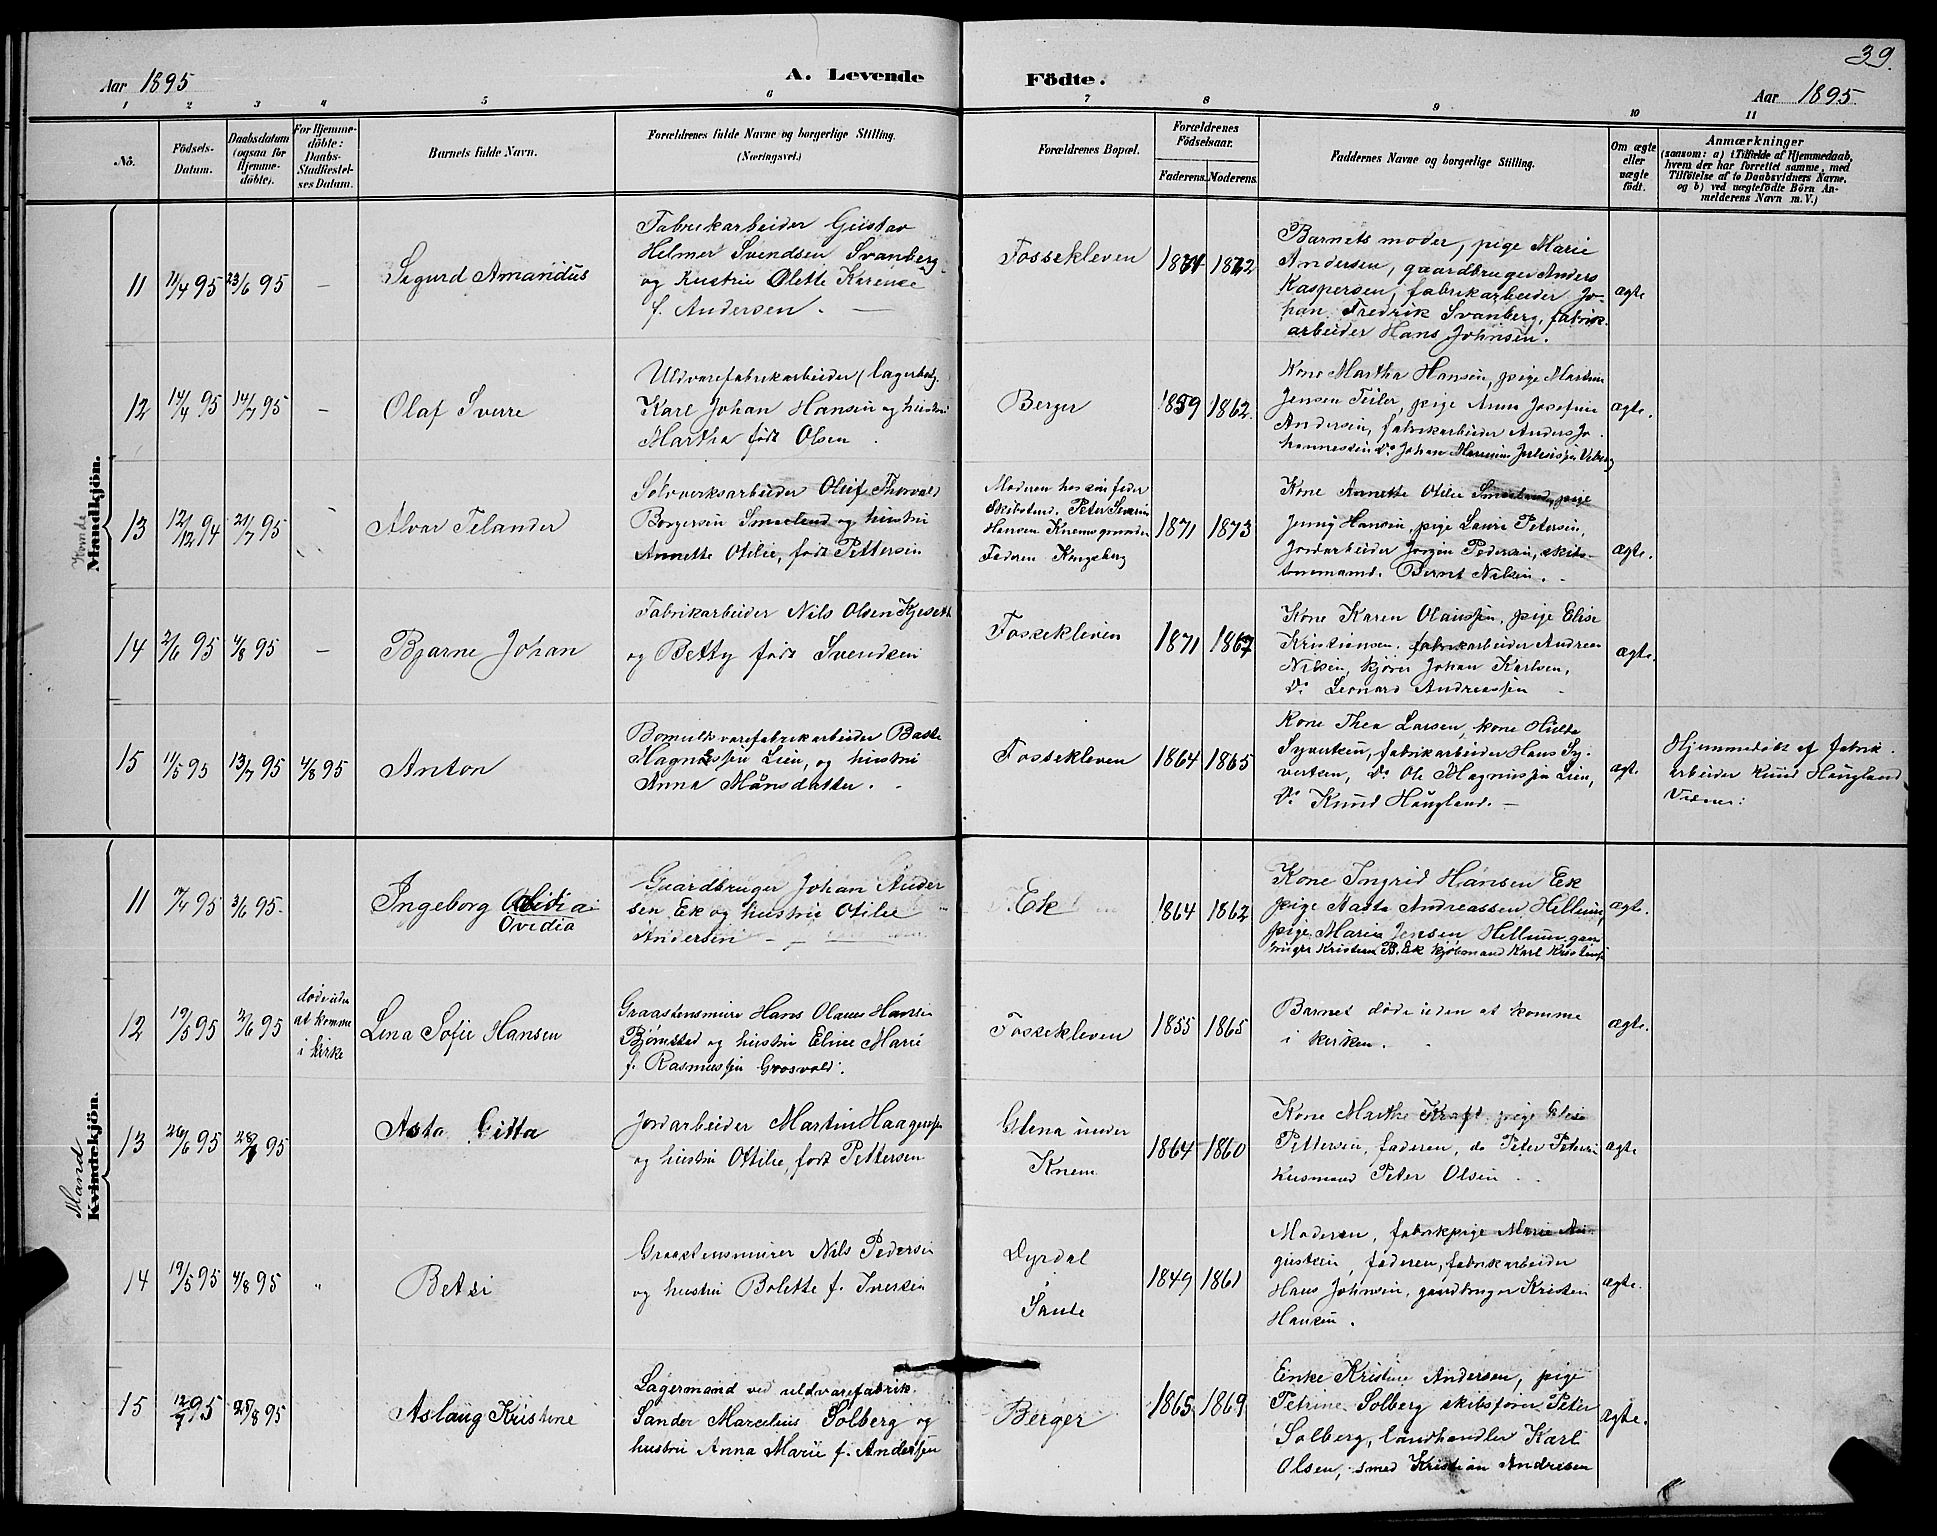 39.
Aar 1895
A. Levende
Födte.
Aar 1895
1 2 3 4 5 6 7 8 9 10 11
No.
Födsels-
Datum.
Daabsdatum
(ogsaa for
Hjemme-
döbte).
For Hjemme-
döbte:
Daabs-
Stadfæstel-
ses Datum.
Barnets fulde Navn.
Forældrenes fulde Navne og borgerlige Stilling.
(Næringsvei.)
Forældrenes Bopæl.
Forældrenes
Födselsaar.
Faderens. Moderens.
Faddernes Navne og borgerlige Stilling.
Om ægte
eller
uægte
født.
Anmærkninger
(saasom: a) i Tilfælde af Hjemmedaab,
hvem der har forrettet samme, med
Tilföielse af to Daabsvidners Navne,
og b) ved uægtefödte Börn An-
melderens Navn m. V.)
Mandkjön.
11
11/4 95
23/6 95
–
Sigurd Amandus
Fabrikarbeider Gustav
Helmer Svendsen Svanberg
og hustru Olette Karense
f. Andersen.
Fossekleven
1872
Barnets moder, pige Marie
Andersen, gaardbruger Anders
Kaspersen, fabrikarbeider Jo-
han Fredrik Svanberg, fabrik-
arbeider Hans Johnsen.
ægte
12
14/4 95
14/7 95
–
Olaf Sverre
Uldvarefabrikarbeider (lagerbetj.
Karl Johan Hansen og hustru
Martha født Olsen
Berger
1859
1862.
Kone Martha Hansen, pige Martine
Jensen Teiler, pige Anna Josefine
Andersen, fabrikarbeider Anders Jo-
hannessen Do Johan
ægte.
13
12/12 94
21/7 95
Alvar Telander
Sølvverksarbeider Oluf Thorvald
Borgersen Smeelund og hustru
Annette Otilie, født Pettersen
Moderen hos sin fader
Skibstønd. Peter Severin
Hansen Knemsgrunden
Faderen Kongsberg
1871
1873
Kone Annette Otilie Smeelund, pige
Jenny Hansen, pige Laura Petersen,
Jordarbeider Jørgen Pedersen, skibs-
tømmermand. Bernt Nilsen.
ægte.
14
2/6 95
4/8 95
–
Bjarne Johan
Fabrikarbeider Nils Olsen Kjeseth
og Betty født Svendsen
Fossekleven
1871
1867
Kone Karen Olaussen, pige Elise
Kristiansen, fabrikarbeider Andreas
Nilsen, kjører Johan Karlsen,
Do Leonard Andreassen
ægte.
15
11/5 95
13/7 95
4/8 95
Anton
Bomuldsvarefabrikarbeider Baste
Magnussen Lien, og hustru
Anna Månsdatter.
Fossekleven
1864
1865
Kone Thea Larsen, kone Hulda
Syvertsen, fabrikarbeider Hans Sy-
vertsen, Do Ole Magnussen Lien,
Do Knud Haugland. –
ægt.
Hjemmedøbt af fabrik-
arbeider Knud Haugland
Vidner:
Mand
Kvindekjön.
11
95
3/6 95.
Ingeborg
Ovidia
Gaardbruger Johan Ander
sen Ek og hustru Otilie
Andersen –
Ek
1864
1862
Kone Ingrid Hansen Ek
pige Aasta Andreassen Hellum,
pige Maria Jensen Hellum, gaar
bruger Kristian B. Ek kjøbmand Karl Kristensen
ægte.
12
19/5 95
2/6 95
døde uden
at komme
i kirke
Lina Sofie Hansen
Graastensmurer Hans Olaus Hansen
Bjørnstad og hustru Eline Marie
f. Rasmussen Grosvold.
Fossekleven
1855
1865
Barnet døde uden at komme
i kirken.
ægte.
13
26/6 95
28/7 95
Asta Gitta
Jordarbeider Martin Haagensen
og hustru Ottilie, født Pettersen
Glena under
Knem
1864
1860
Kone Marthe Kraft, pige Elise
Pettersen, faderen, do Peter Petersen
husmand Peter Olsen
ægte
14
19/5 95
4/8 95
"
Betsi
Graastensmurer Nils Pedersen
og hustru Bolette f. Iversen
Dyrdal
Sande
1849
1861
Moderen, fabrikpige Marie Au-
gustsen, faderen, fabrikarbeider
Hans Johnsen, gaardbruger Kristen
Hansen.
ægte.
15
12/7 95
25/8 95
Aslaug Kristine
Lagermand ved uldvarefabrik.
Sander Marcelius Solberg og
hustru Anna Marie f. Andersen
Berger
1865
1869
Enke Kristine Andersen, pige
Petrine Solberg skibsfører Peter
Solberg, landhandler Karl
Olsen, smed Kristian Andresen
ægte.